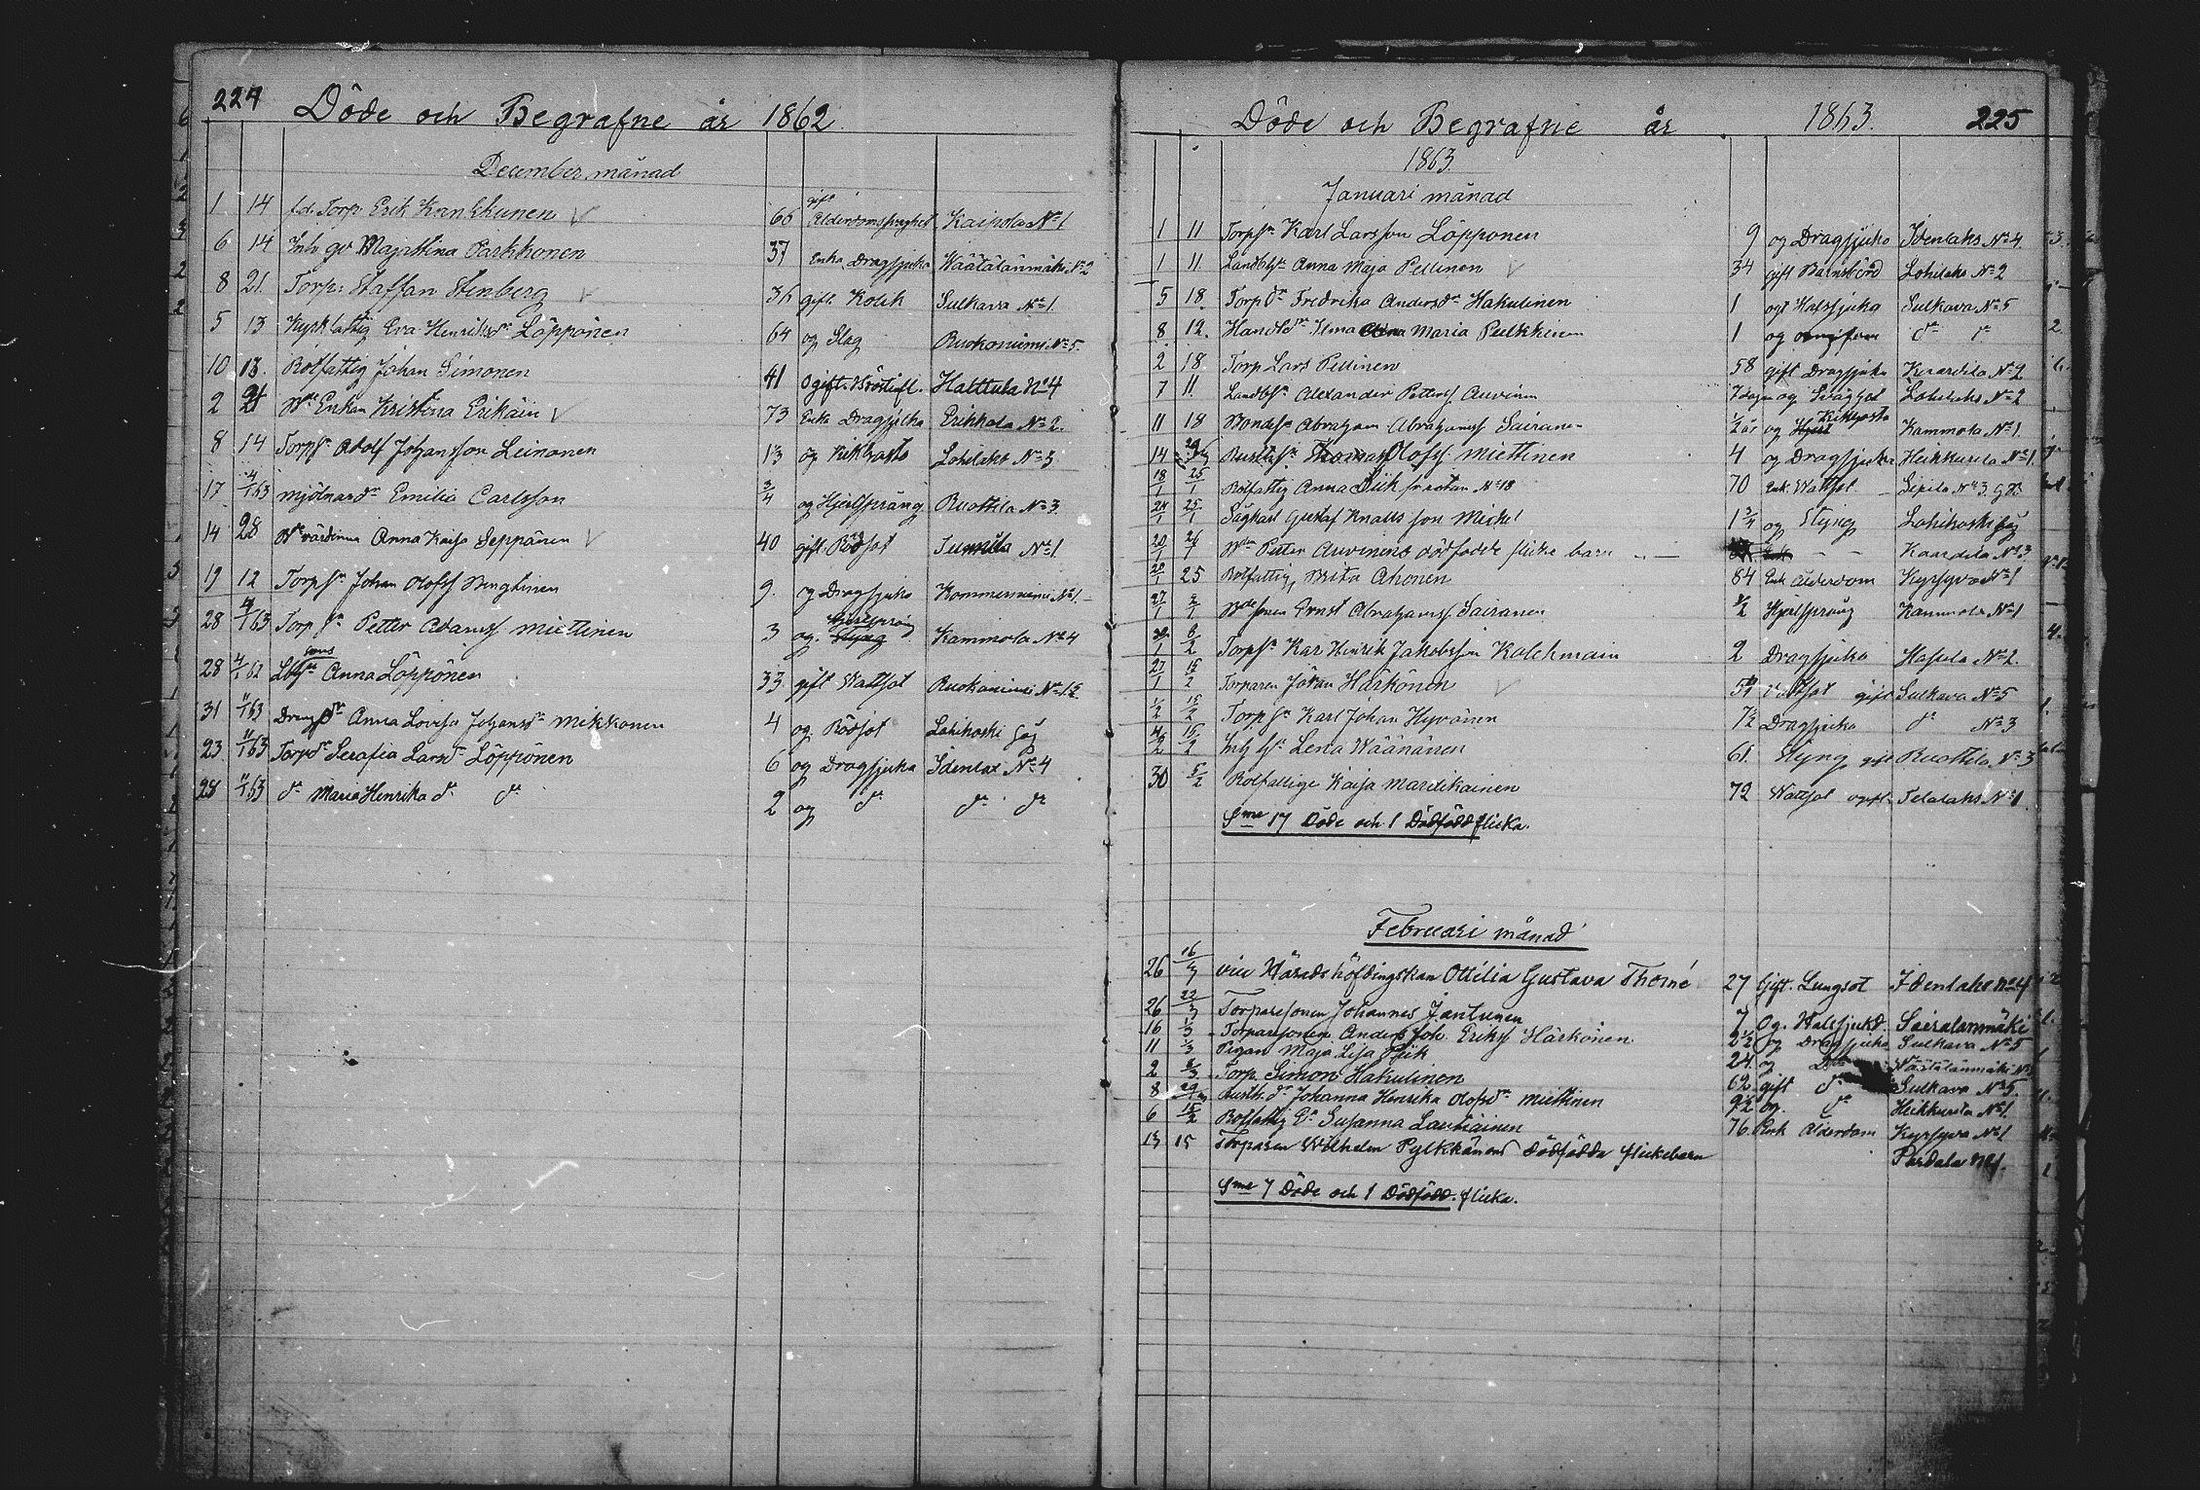 224 Döde och Begrafne år 1862.
December månad
1 14 f.d. Torp Erik Kankkunen 66 gift Ålderdomssvaghet Kaipola No 1
6 14 Inh Majastina Parkkonen 37 Enka Dragsjuka Wäätälänmäki No 2
8 21. Torp: Staffan Stenberg 36 gift Kolik Sulkava No 1.
5 13 Kyrkfattig Eva Henriksdr Löppönen 64 og Slag Ruokoniemi No 5.
10 13. Rotfattig Johan Simonen 41 ogift Bröstinfl. Halttula No 4
2 21 Enkan Kristina Erikäin 73 Enka Dragsjuka Erikkala No 2.
8 14 Torpsn Adolf Johansson Leinonen 13 og Kikhosta Lohilaks No 3
17 4/1 63 Mjölnardr Emilia Carlsson 3/4 og Hjertsprång Ruottila No 3.
14 28 Wärdinna Anna Kaisa Seppänen 40 gift. Rödsot No 1
19 12 Torpsn Johan Olofss 9. og Dragsjuka Kommerniemi No 1.
28 4/1 63 Torp sn Petter Adamss Miettinen 3 og. Hjertsprång Kammola No 4
28 4/1 62 Anna Löppönen 33 gift Wattsot Ruokoniemi No 12
31 11/1 63 Drengdr Anna Lovisa Johansdr Mikkonen 4 og Rödsot Lohikoski såg
23 11/1 63 Torpdr Serafia Larsdr Löppönen 6 og Dragsjuka Idenlax No 4
28 11/1 63 dr Maria Henrika dr do 2 og do do do
Döde och Begrafne år 1863. 225
1863.
Januari månad
1 11 Torpsn Karl Larsson Löpponen 9 og Dragsjuka Idenlaks No 4
1 11 Landbhn Anna Maja Pellinen 34 gift Barnsbörd Lohilaks No 2
5 18. Torp dr Fredrika Andersdr Hakulinen 1 ogt Halssjuka Sulkava No 5
8 12. Handldr Ilma Maria Pulkkinen 1 og do do
2 18 Torp Lars Pellinen 58 gift Dragsjuka Kaartila No 2
7 11. Landbsn Alexander Petterss Auvinen 7 dagar og Lohilaks No 2
11 18 Bondesn Abraham Abrahamss Sairanen 1/2 år og Kikhosta Kammola No 1.
14 Rusthsn Thomas Olofss. Miettinen 4 og Dragsjuka Heikkurila No 1.
18/1 25/1 Rotfattig Anna Piik No 18 70 Enk. Wattsot Sipila No 3.
24/1 25/1 Sågkarl Gustaf Knalls son Mickel 1 3/4 og Styng Lohikoski såg
20/1 Petter Auvinens dödfödde flicke barn Kaartila No 3
20/1 25 Rotfattig Brita Ahonen 84 Enk Ålderdom Kyrsyvä No 1
27/1 sonen Ernst Abrahamss Sairanen 1/2 Hjertsprång Kammola No 1
30/1 8/2 Torpsn Karl Henrik Jakobsson Kolehmain 2 Dragsjuka No 2.
27/1 15/2 Torparen Johan Härkönen 59 Wattsot gift Sulkava No 5
1/2 15/2 Torpsn Karl Johan Hyvönen 7 1/2 Dragsjuka do No 3
4/2 15/2 Inh hn Lena Wäänänen 61. Styng gift Ruottila No 3
30 8/2 Rotfattige Kaisa Martikainen 72 Wattsot ogift Telalaks No 1.
Sme 17 Döde och 1 Dödfödd flicka.
Februari månad
26 16/3 vice Häradshöfdingskan Ottilia Gustava Thomé 27 Gift. Lungsot Idenlaks No 4
26 22/3 Torparesonen Johannes Jantunen 7 Og. Halssjukd. Sairalanmäki
16 1/3 Torparesonen Anders Joh. Erikss Härkönen 2 1/2 og Dragsjuka Sulkava No 5
11 1/3 Pigan Maja Lisa Piik 24 og Do Wäätälänmäki No
2 8/3 Torp. Simon Hakulinen 62. gift do Sulkava No 5.
8 Rusth. dr Johanna Henrika Olofsdr Miettinen 9 1/2 og. do Heikkurila No 1.
6 15/2 Rotfattig Susanna Lautiainen 76. Enk Ålderdom Kyrsyvä No 1
13 15 Torparen Wilhelm Pylkkänens dödfödda flickebarn Partala No 1.
Sme 7 Döde och 1 Dödfödd. flicka.